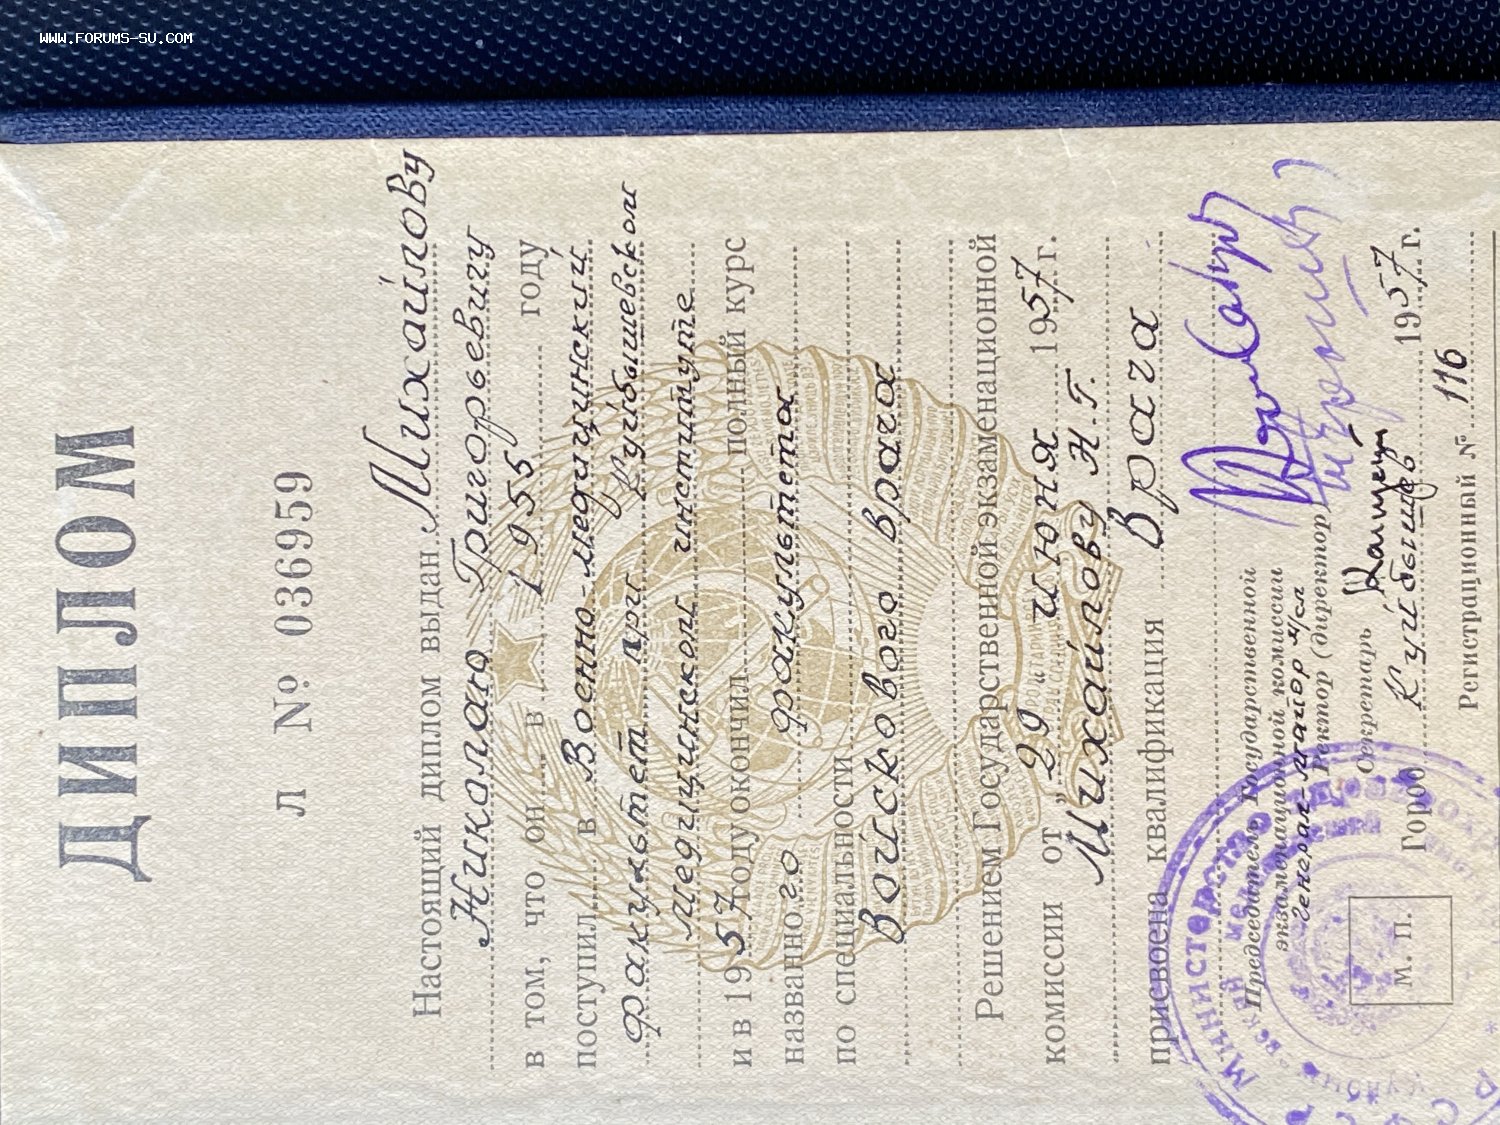 WWW.FORUMS-SU.COM
ДИПЛОМ
Л № 036959
Настоящий диплом выдан Михайлову
Николаю Григорьевичу
в том, что он в 1955 году
поступил в Военно-медицинский
факультет при Куйбышевском
медицинском институте
и в 1957 году окончил полный курс
названного факультета
по специальности
Войскового врача
Решением Государственной экзаменационной
комиссии от „29 “ июня 1957 г.
Михайлову Н.Г.
присвоена квалификация Врача
Председатель Государственной
экзаменационной комиссии
Генерал-майор м/сл
Ректор (директор)
Секретарь
Город Куйбышев 1957 г.
М. П.
Регистрационный № 116
Министерство здравоохра